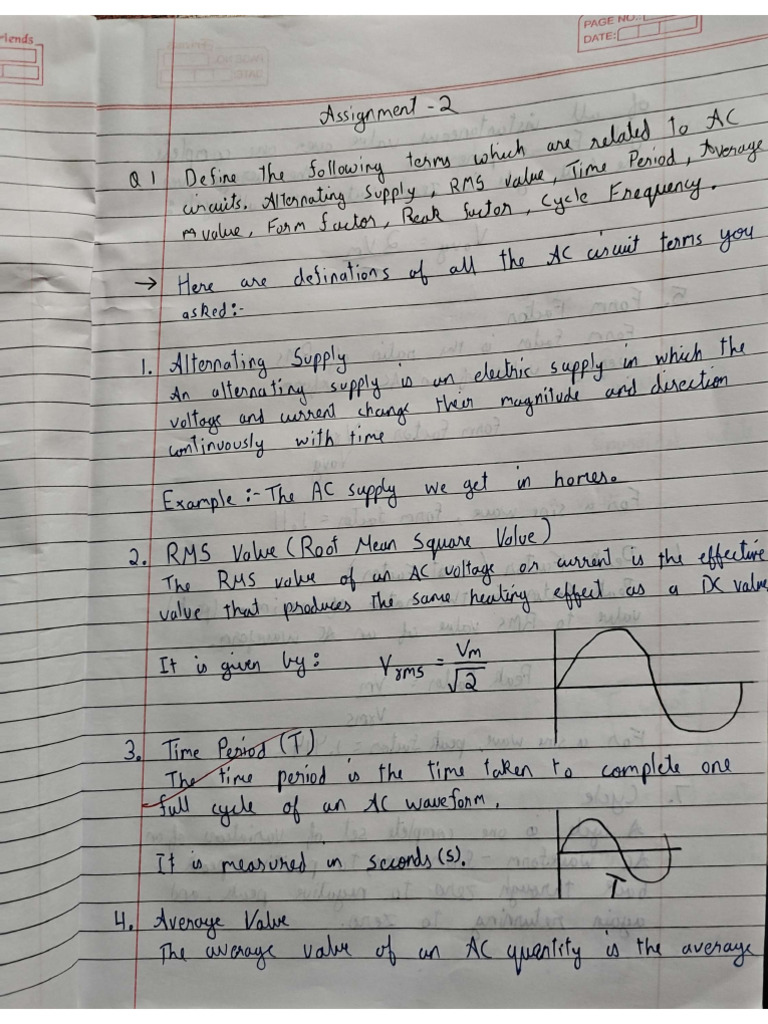 riends
PAGE NO.:
DATE:
Assignment - 2
Q 1 Define the following terms which are related to AC
circuits. Alternating Supply, RMS value, Time Period, Average
value, Form factor, Peak factor, Cycle Frequency.
→ Here are definations of all the AC circuit terms you
asked:-
1. Alternating Supply
An alternating supply is an electric supply in which the
voltage and current change their magnitude and direction
continuously with time
Example:- The AC supply we get in homes.
2. RMS Value (Root Mean Square Value)
The RMS value of an AC voltage or current is the effective
value that produces the same heating effect as a DC value
It is given by: Vrms = Vm/√2
3. Time Period (T)
The time period is the time taken to complete one
full cycle of an AC waveform.
It is measured in seconds (s).
T
4. Average Value
The average value of an AC quantity is the average